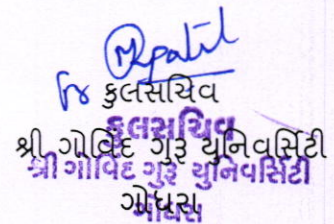 કુલસચિવ
કુલસચિવ
શ્રી ગોવિંદ ગુરૂ યુનિવર્સિટી
શ્રી ગોવિંદ ગુરૂ યુનિવર્સિટી
ગોધરા
ગોધરા